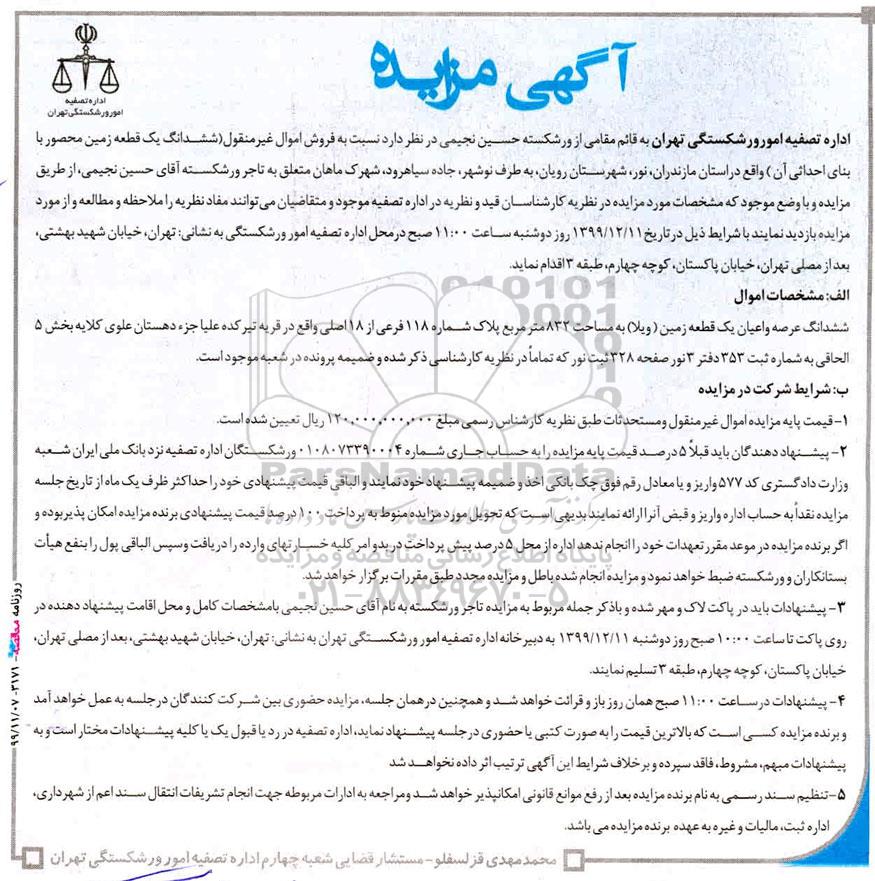 آگهی مزایده
اداره تصفیه
امور ورشکستگی تهران
اداره تصفیه امور ورشکستگی تهران به قائم مقامی از ورشکسته حسین نجیمی در نظر دارد نسبت به فروش اموال غیر منقول(ششدانگ یک قطعه زمین محصور با
بنای احداثی آن ) واقع در استان مازندران، نور، شهرستان رویان، به طرف نوشهر، جاده سیاهرود، شهرک ماهان متعلق به تاجر ورشکسته آقای حسین نجیمی، از طریق
مزایده و با وضع موجود که مشخصات مورد مزایده در نظریه کارشناسان قید و نظریه در اداره تصفیه موجود و متقاضیان می‌توانند مفاد نظریه را ملاحظه و مطالعه و از مورد
مزایده بازدید نمایند با شرایط ذیل در تاریخ ۱۳۹۹/۱۲/۱۱ روز دوشنبه ساعت ۱۱:۰۰ صبح در محل اداره تصفیه امور ورشکستگی به نشانی: تهران، خیابان شهید بهشتی،
بعد از مصلی تهران، خیابان پاکستان، کوچه چهارم، طبقه ۳ اقدام نماید.
الف: مشخصات اموال
ششدانگ عرصه واعیان یک قطعه زمین ( ویلا) به مساحت ۸۳۲ متر مربع پلاک شماره ۱۱۸ فرعی از ۱۸ اصلی واقع در قریه تیرکده علیا جزء دهستان علوی کلایه بخش ۵
الحاقی به شماره ثبت ۳۵۳ دفتر ۳ نور صفحه ۳۲۸ ثبت نور که تماماً در نظریه کارشناسی ذکر شده و ضمیمه پرونده در شعبه موجود است.
ب: شرایط شرکت در مزایده
۱- قیمت پایه مزایده اموال غیر منقول ومستحدثات طبق نظریه کارشناس رسمی مبلغ ۱۲۰,۰۰۰,۰۰۰,۰۰۰ ریال تعیین شده است.
۲- پیشنهاد دهندگان باید قبلاً ۵ درصد قیمت پایه مزایده را به حساب جاری شماره ۰۱۰۸۰۷۳۳۹۰۰۰۴ ورشکستگان اداره تصفیه نزد بانک ملی ایران شعبه
وزارت دادگستری کد ۵۷۷ واریز و یا معادل رقم فوق چک بانکی اخذ و ضمیمه پیشنهاد خود نمایند و الباقی قیمت پیشنهادی خود را حداکثر ظرف یک ماه از تاریخ جلسه
مزایده نقداً به حساب اداره واریز و قبض آنرا ارائه نمایند بدیهی است که تحویل مورد مزایده منوط به پرداخت ۱۰۰ درصد قیمت پیشنهادی برنده مزایده امکان پذیر بوده و
اگر برنده مزایده در موعد مقرر تعهدات خود را انجام ندهد اداره از محل ۵ درصد پیش پرداخت در بدو امر کلیه خسارتهای وارده را دریافت وسپس الباقی پول را بنفع هیأت
بستانکاران و ورشکسته ضبط خواهد نمود و مزایده انجام شده باطل و مزایده مجدد طبق مقررات برگزار خواهد شد.
۳- پیشنهادات باید در پاکت لاک و مهر شده و با ذکر جمله مربوط به مزایده تاجر ورشکسته به نام آقای حسین نجیمی با مشخصات کامل و محل اقامت پیشنهاد دهنده در
روی پاکت تا ساعت ۱۰:۰۰ صبح روز دوشنبه ۱۳۹۹/۱۲/۱۱ به دبیرخانه اداره تصفیه امور ورشکستگی تهران به نشانی: تهران، خیابان شهید بهشتی، بعد از مصلی تهران،
خیابان پاکستان، کوچه چهارم، طبقه ۳ تسلیم نمایند.
۴- پیشنهادات در ساعت ۱۱:۰۰ صبح همان روز باز و قرائت خواهد شد و همچنین در همان جلسه، مزایده حضوری بین شرکت کنندگان در جلسه به عمل خواهد آمد
و برنده مزایده کسی است که بالاترین قیمت را به صورت کتبی یا حضوری در جلسه پیشنهاد نماید، اداره تصفیه در رد یا قبول یک یا کلیه پیشنهادات مختار است و به
پیشنهادات مبهم، مشروط، فاقد سپرده و برخلاف شرایط این آگهی ترتیب اثر داده نخواهد شد
۵- تنظیم سند رسمی به نام برنده مزایده بعد از رفع موانع قانونی امکانپذیر خواهد شد ومراجعه به ادارات مربوطه جهت انجام تشریفات انتقال سند اعم از شهرداری،
اداره ثبت، مالیات و غیره به عهده برنده مزایده می باشد.
محمدمهدی قزلسفلو - مستشار قضایی شعبه چهارم اداره تصفیه امور ورشکستگی تهران
روزنامه - ۳۱۷۱ - ۹۹/۱۱/۰۷
ParsNamadData
پایگاه اطلاع رسانی مناقصه و مزایده
۰۲۱-۸۸۳۴۹۶۷۰-۵